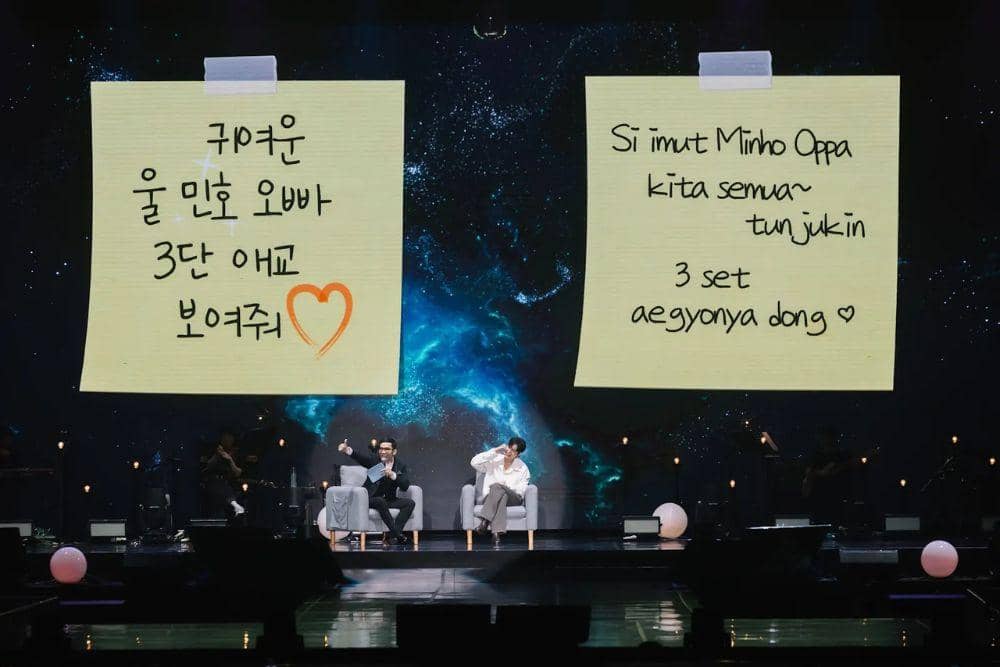 귀여운
울 민호 오빠
3단 애교
보여줘
Si imut Minho Oppa
kita semua~
tunjukin
3 set
aegyonya dong ♡